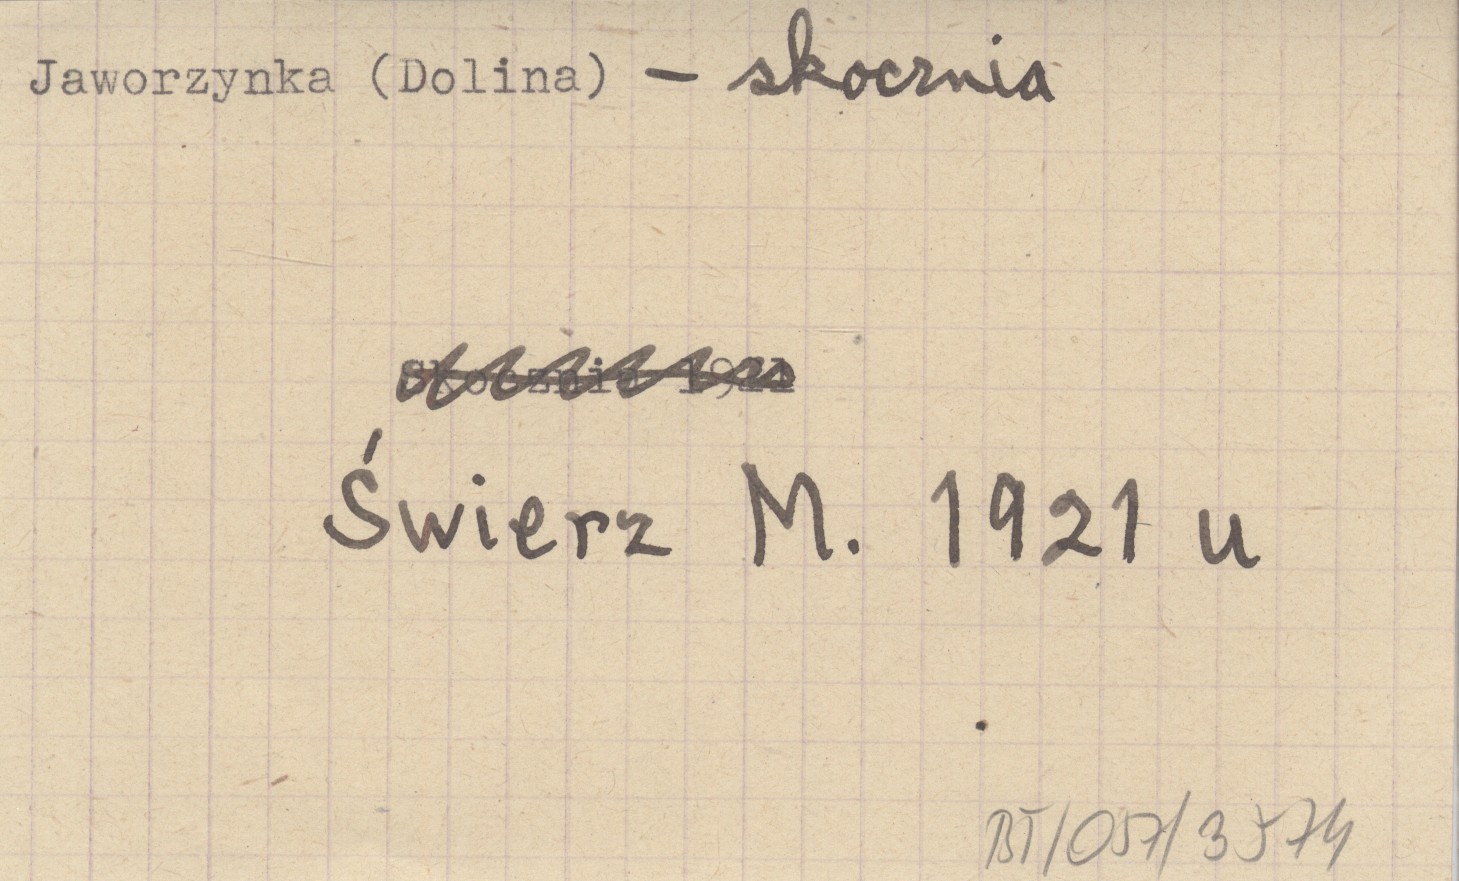 Jaworzynka (Dolina) – skocznia
Skocznia 1921
Świerz M. 1921 u
BT/057/3574